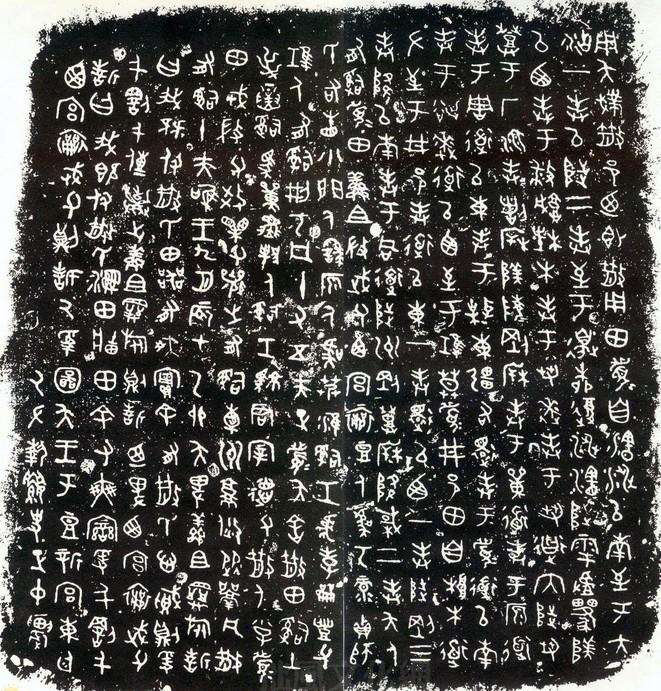 用夨撲散邑乃即散用田眉自瀗涉以南至于大
沽一奉以陟二奉至于邊柳復涉瀗陟雩
以西奉于城木奉于芻逨奉于芻道内陟芻
登于厂湶奉陵剛奉于單道奉于原道
奉于周道以東奉于東疆右還奉于眉道以南
奉于逨道以西至于莫眉井邑田自根木道
左至于井邑奉道以東一奉還以西一奉陟剛三
奉降以南奉于同道陟州剛登降棫二奉夨人
有𤔲眉田鮮且微武父西宮襄豆人虞丂彔貞師
氏右眚小門人繇原人虞艿淮𤔲工虎孝豐父
人有𤔲丂凡十又五夫正眉夨舍散田𤔲土
屰𤔲馬人𤔲工君宰德父散人小子眉
田戎微父效父襄之有𤔲橐州焂從凡散
有𤔲十夫唯王九月辰才乙卯夨卑鮮且旅誓
曰我既付散氏田器有爽實余有散氏心賊則爰
千罰千傳棄之鮮且旅則誓迺卑西宮襄武父
誓曰我既付散氏濕田田余有爽爰千罰千
西宮襄武父則誓厥受圖夨王于豆新宮東廷
厥左執要史正中農